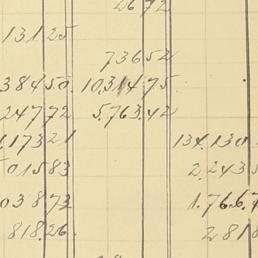 2672
131.25
736.52
384.50. 10,314.75
247.72 5,763.42
1,173.21 134.130
015.83 2,243.5
03873 1.766.6
818.26. 2818